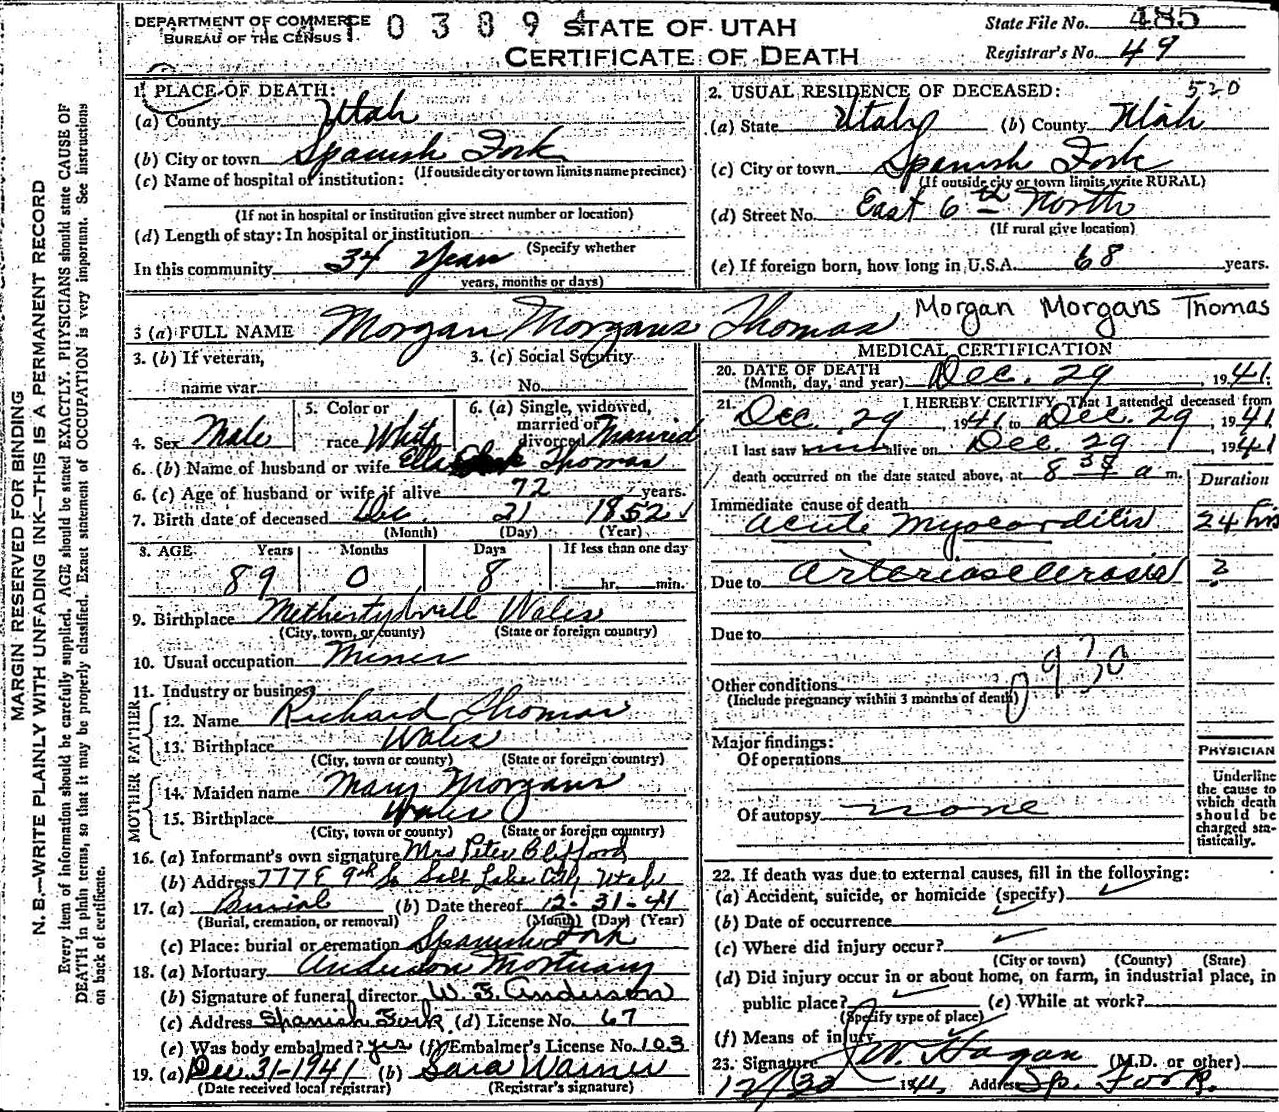 DEPARTMENT OF COMMERCE
BUREAU OF THE CENSUS
0 3 8 9 4
STATE OF UTAH
CERTIFICATE OF DEATH
State File No. 485
Registrar's No. 49
1. PLACE OF DEATH:
(a) County Utah
(b) City or town Spanish Fork
(If outside city or town limits name precinct)
(c) Name of hospital or institution:
(If not in hospital or institution give street number or location)
(d) Length of stay: In hospital or institution
(Specify whether
In this community 34 years
years, months or days)
2. USUAL RESIDENCE OF DECEASED: 520
(a) State Utah (b) County Utah
(c) City or town Spanish Fork
(If outside city or town limits write RURAL)
(d) Street No. East 6th North
(If rural give location)
(e) If foreign born, how long in U.S.A. 68 years.
3 (a) FULL NAME Morgan Morgans Thomas Morgan Morgans Thomas
3. (b) If veteran, name war
3. (c) Social Security No.
4. Sex Male
5. Color or race White
6. (a) Single, widowed, married or divorced Married
6. (b) Name of husband or wife Thomas
6. (c) Age of husband or wife if alive 72 years.
7. Birth date of deceased Dec. 21 1852
(Month) (Day) (Year)
8. AGE Years Months Days If less than one day
89 0 8 hr. min.
9. Birthplace Wales
(City, town, or county) (State or foreign country)
10. Usual occupation Miner
11. Industry or business
FATHER
12. Name Richard Thomas
13. Birthplace Wales
(City, town or county) (State or foreign country)
MOTHER
14. Maiden name Mary Morgans
15. Birthplace Wales
(City, town or county) (State or foreign country)
16. (a) Informant's own signature Mrs Peter Clifford
(b) Address 777 E 9th So Salt Lake City Utah
17. (a) Burial (b) Date thereof 12-31-41
(Burial, cremation, or removal) (Month) (Day) (Year)
(c) Place: burial or cremation Spanish Fork
18. (a) Mortuary Anderson Mortuary
(b) Signature of funeral director W. F. Anderson
(c) Address Spanish Fork (d) License No. 67
(e) Was body embalmed? yes (f) Embalmer's License No. 103
19. (a) Dec 31-1941 (b) Sara Warner
(Date received local registrar) (Registrar's signature)
MEDICAL CERTIFICATION
20. DATE OF DEATH
(Month, day, and year) Dec. 29, 1941.
21. I HEREBY CERTIFY, That I attended deceased from
Dec. 29, 1941 to Dec. 29, 1941
I last saw him alive on Dec. 29 1941
death occurred on the date stated above, at 8 a m.
Duration
Immediate cause of death
Acute Myocarditis 24 hrs
Due to Arteriosclerosis ?
Due to
Other conditions
(Include pregnancy within 3 months of death)
930
Major findings:
Of operations
Of autopsy none
PHYSICIAN
Underline the cause to which death should be charged statistically.
22. If death was due to external causes, fill in the following:
(a) Accident, suicide, or homicide (specify)
(b) Date of occurrence
(c) Where did injury occur?
(City or town) (County) (State)
(d) Did injury occur in or about home, on farm, in industrial place, in
public place? (e) While at work?
(Specify type of place)
(f) Means of injury
23. Signature W. Hagan (M.D. or other)
12/30 1941 Address Sp. Fork.
MARGIN RESERVED FOR BINDING
N. B.—WRITE PLAINLY WITH UNFADING INK—THIS IS A PERMANENT RECORD
Every item of information should be carefully supplied. AGE should be stated EXACTLY. PHYSICIANS should state CAUSE OF
DEATH in plain terms, so that it may be properly classified. Exact statement of OCCUPATION is very important. See instructions
on back of certificate.